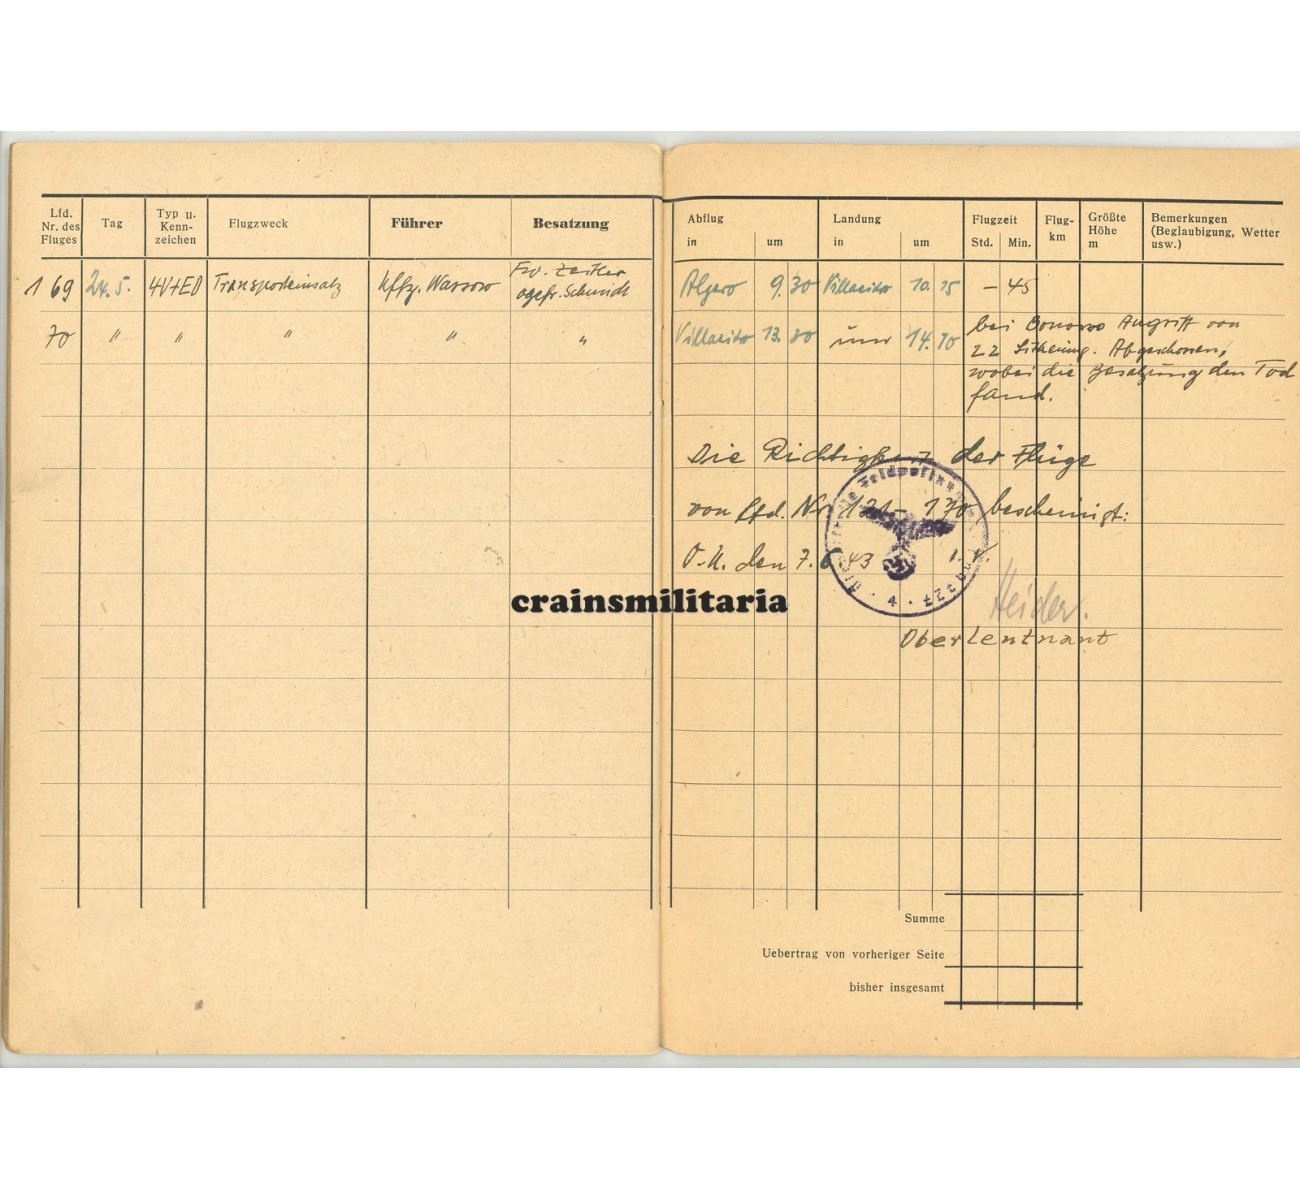 Lfd. Nr. des Fluges
Tag
Typ u. Kenn- zeichen
Flugzweck
Führer
Besatzung
Abflug
in
um
Landung
in
um
Flugzeit
Std.
Min.
Flug- km
Größte Höhe m
Bemerkungen (Beglaubigung, Wetter usw.)
169 24.5. 4V+ED Transporteinsatz Uffz. Schmidt 9.30 10.15 - 45
70 " " " " " 14.10 bei Angriff von
22 Abgeschossen,
wobei die Besatzung den Tod
fand.
Die Richtigkeit der Flüge
von Lfd. Nr. 121 - 170 bescheinigt:
O.U. den 7.6.43 I.V.
Oberleutnant
crainsmilitaria
Summe
Uebertrag von vorheriger Seite
bisher insgesamt